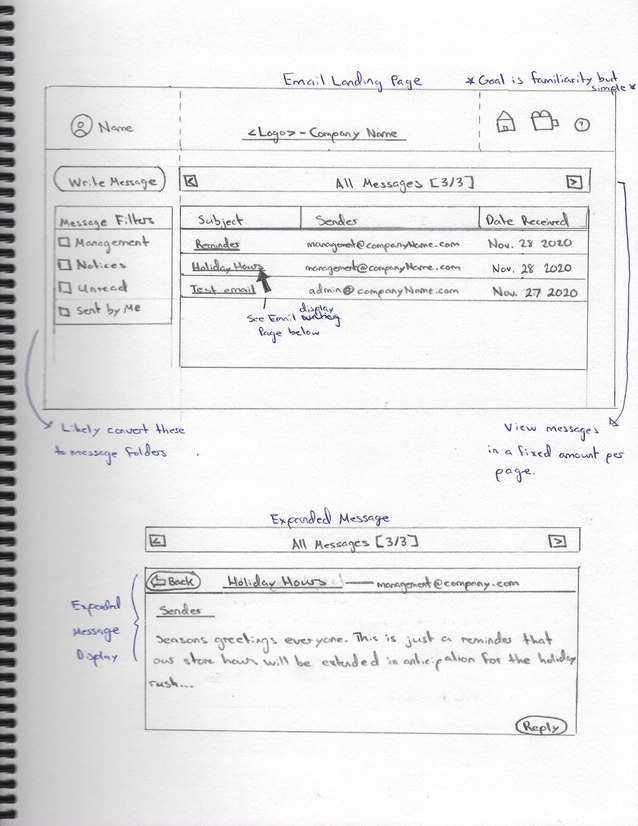 Email Landing Page
* Goal is familiarity but simple *
Name
<Logo> - Company Name
?
Write Message
<
All Messages [3/3]
>
Message Filters
Management
Notices
Unread
Sent by Me
Subject Sender Date Received
Reminder management@companyName.com Nov. 28 2020
Holiday Hours management@companyName.com Nov. 28 2020
Test email admin@companyName.com Nov. 27 2020
See Email display
Page below
Likely convert these
to message folders
View messages
in a fixed amount per
page.
Expanded Message
<
All Messages [3/3]
>
Back
Holiday Hours — management@company.com
Expanded
Message
Display
Sender
Seasons greetings everyone. This is just a reminder that
our store hours will be extended in anticipation for the holiday
rush...
Reply